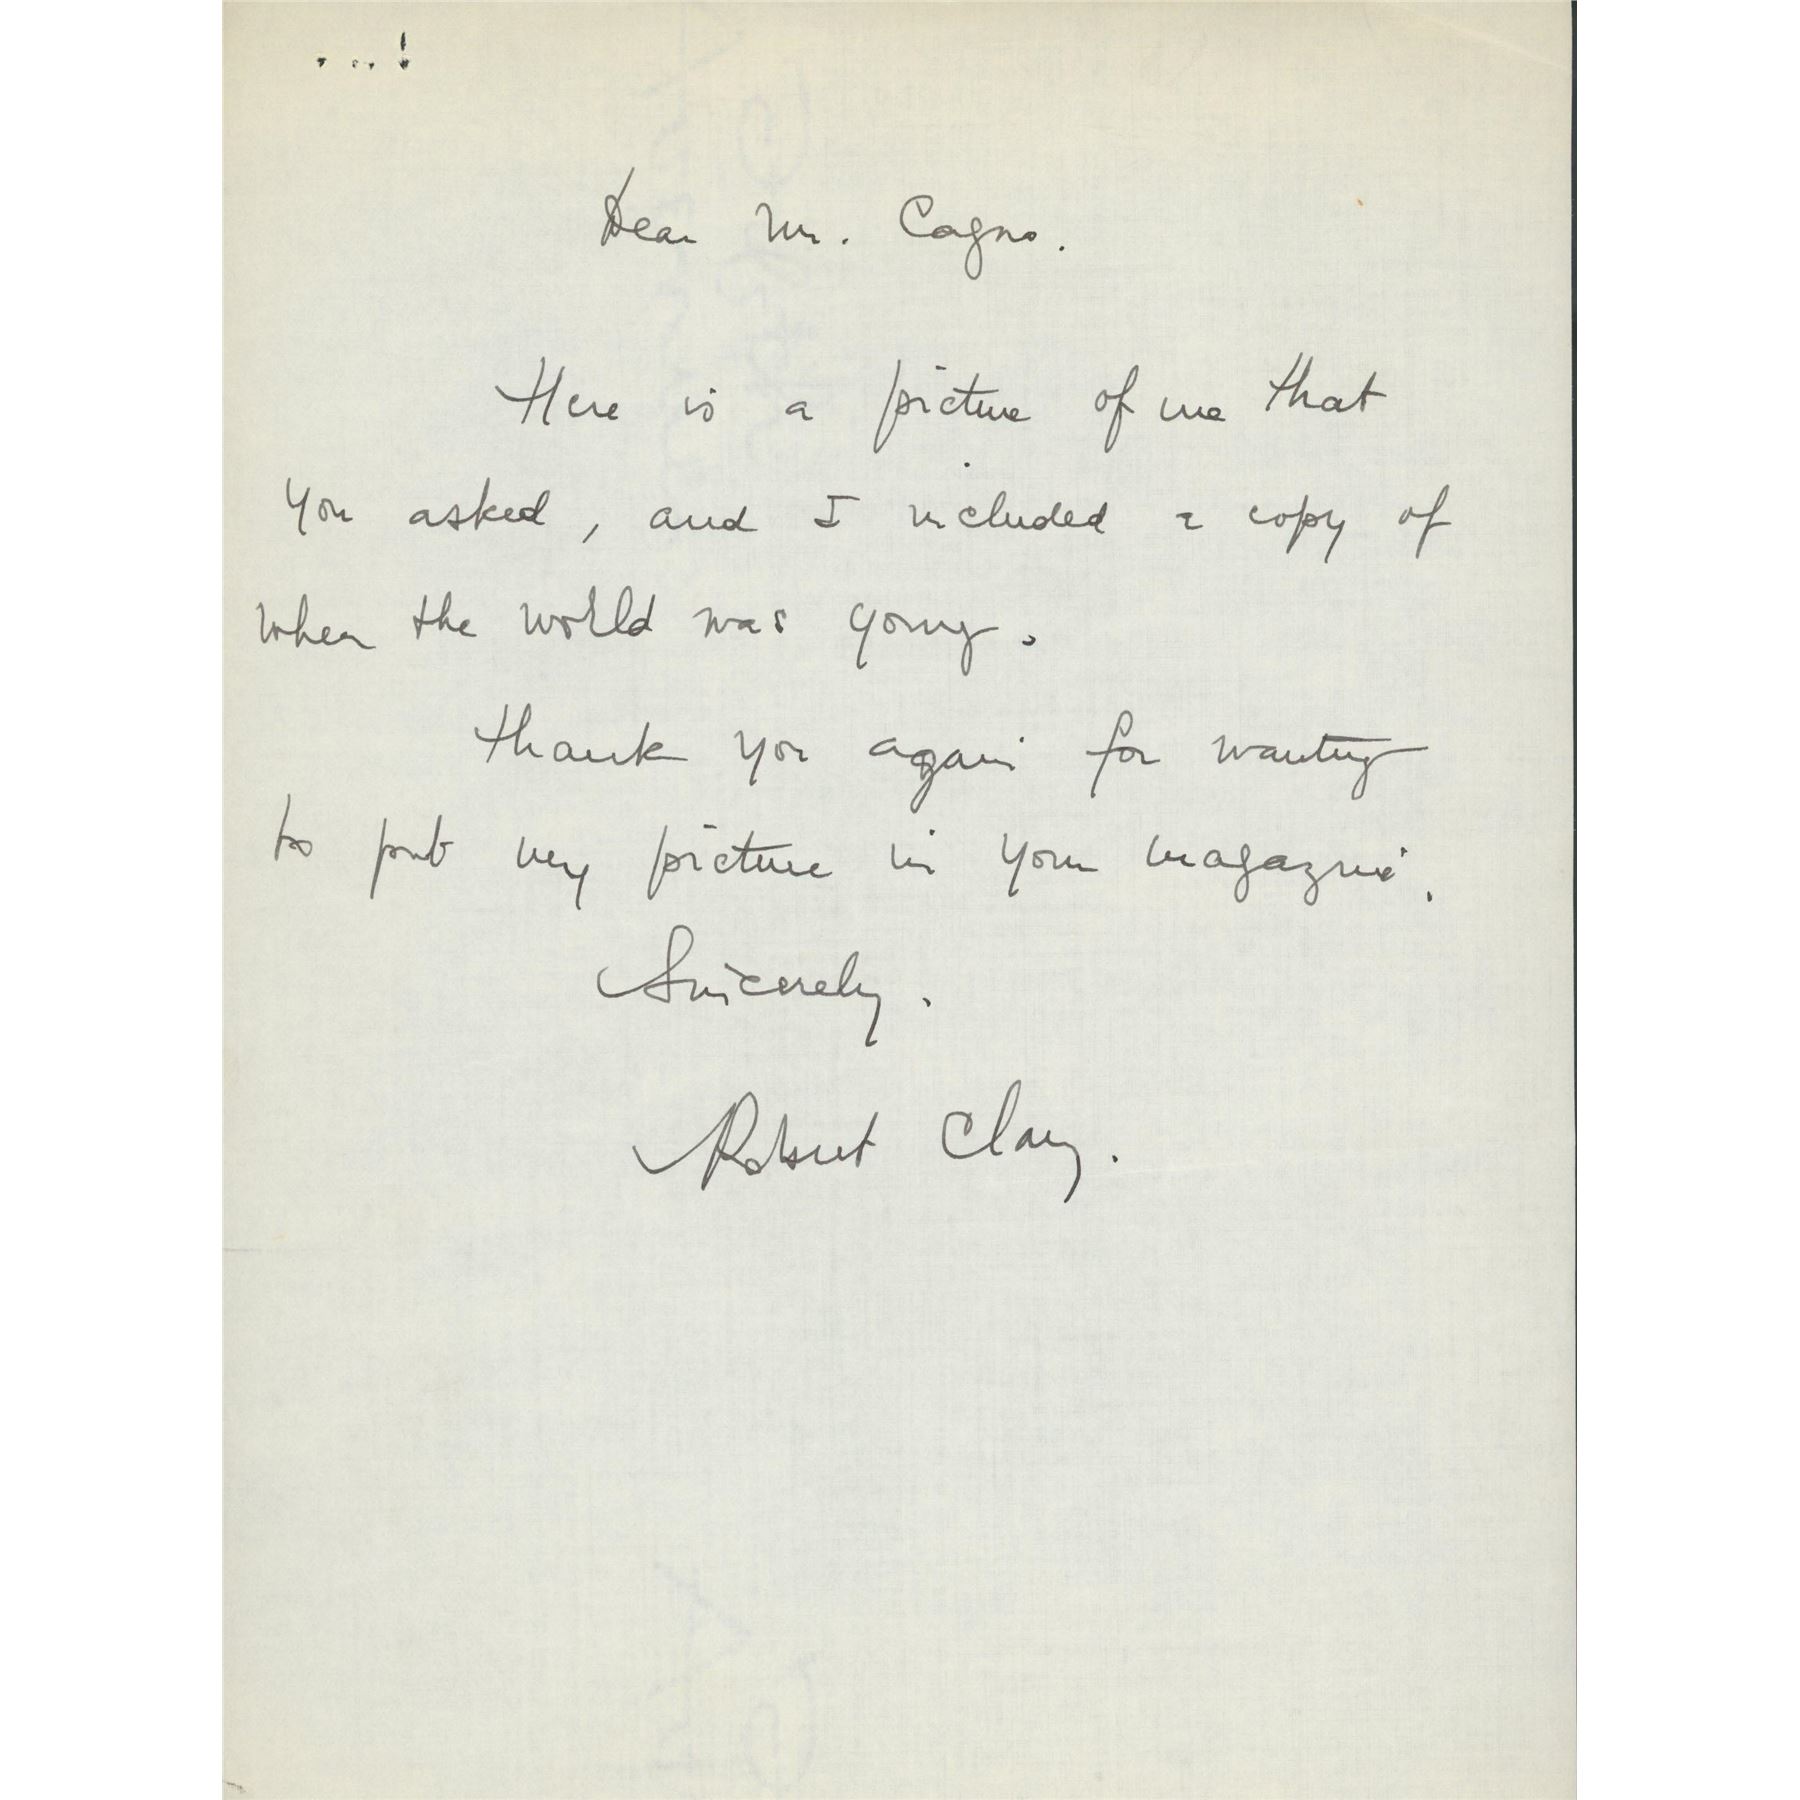 Dear Mr. Cagno.
Here is a picture of me that
you asked, and I included a copy of
when the world was young.
Thank you again for wanting
to put my picture in your magazine.
Sincerely.
Robert Clary.